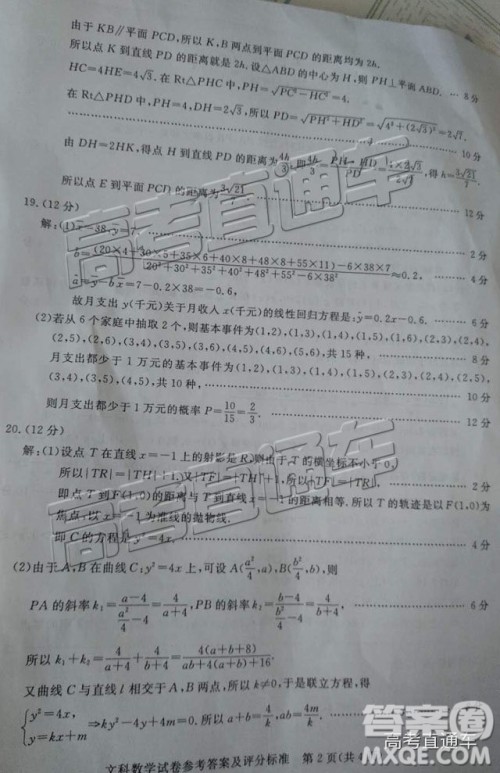 由于 KB∥平面 PCD,所以 K,B 两点到平面 PCD 的距离均为 2h.
所以点 K 到直线 PD 的距离就是 2h. 设△ABD 的中心为 H,则 PH⊥平面 ABD. … 8分
HC=4HE=4√3. 在 Rt△PHC 中,PH=√(PC²-HC²)=4.
在 Rt△PHD 中,PH=4,DH=2√3,所以 PD=√(PH²+HD²)=√(4²+(2√3)²)=2√7.
10分
由 DH=2HK,得点 H 到直线 PD 的距离为 4h/3,即 4h/3=
,得 h=
所以点 E 到平面 PCD 的距离为
12分
19.(12分)
解:(1)x=38,y=7
2分
b=((20×4+30×5+35×6+40×8+48×8+55×11)-6×38×7)/(20²+30²+35²+40²+48²+55²-6×38²)≈0.2,
4分
a=y-bx=7-0.2×38=-0.6,
故月支出 y(千元)关于月收入 x(千元)的线性回归方程是:y=0.2x-0.6.
6分
(2)若从 6 个家庭中抽取 2 个,则基本事件为(1,2),(1,3),(1,4),(1,5),(1,6),(2,3),(2,4),
(2,5),(2,6),(3,4),(3,5),(3,6),(4,5),(4,6),(5,6),共 15 种,
8分
月支出都少于 1 万元的基本事件为(1,2),(1,3),(1,4),(1,5),(2,3),(2,4),(2,5)
(3,4),(3,5),(4,5),共 10 种,
10分
则月支出都少于 1 万元的概率 P=10/15=2/3.
12分
20.(12分)
解:(1)设点 T 在直线 x=-1 上的射影是 R,则由于 T 的横坐标不小于 0,
所以|TR|=|TH|+1,又|TF|=|TH|+1,所以|TF|=|TR|,
2分
即点 T 到 F(1,0)的距离与 T 到直线 x=-1 的距离相等. 所以 T 的轨迹是以 F(1,0)为
焦点,以 x=-1 为准线的抛物线.
即 C 的方程是 y²=4x.
4分
(2)由于 A,B 在曲线 C:y²=4x 上,可设 A(a²/4,a),B(b²/4,b),则
PA 的斜率 k₁=(a-4)/(a²/4-4)=4/(a+4),PB 的斜率 k₂=(b-4)/(b²/4-4)=4/(b+4).
6分
所以 k₁+k₂=4/(a+4)+4/(b+4)=4(a+b+8)/(ab+4(a+b)+16).
又曲线 C 与直线 l 相交于 A,B 两点,所以 k≠0,于是联立方程,得
{y²=4x, y=kx+m ⇒ky²-4y+4m=0. 所以 a+b=4/k,ab=4m/k.
文科数学试卷参考答案及评分标准 第 2 页(共 4
高考直通车
高考直通车
高考直通车
答案圈
MXQE.COM